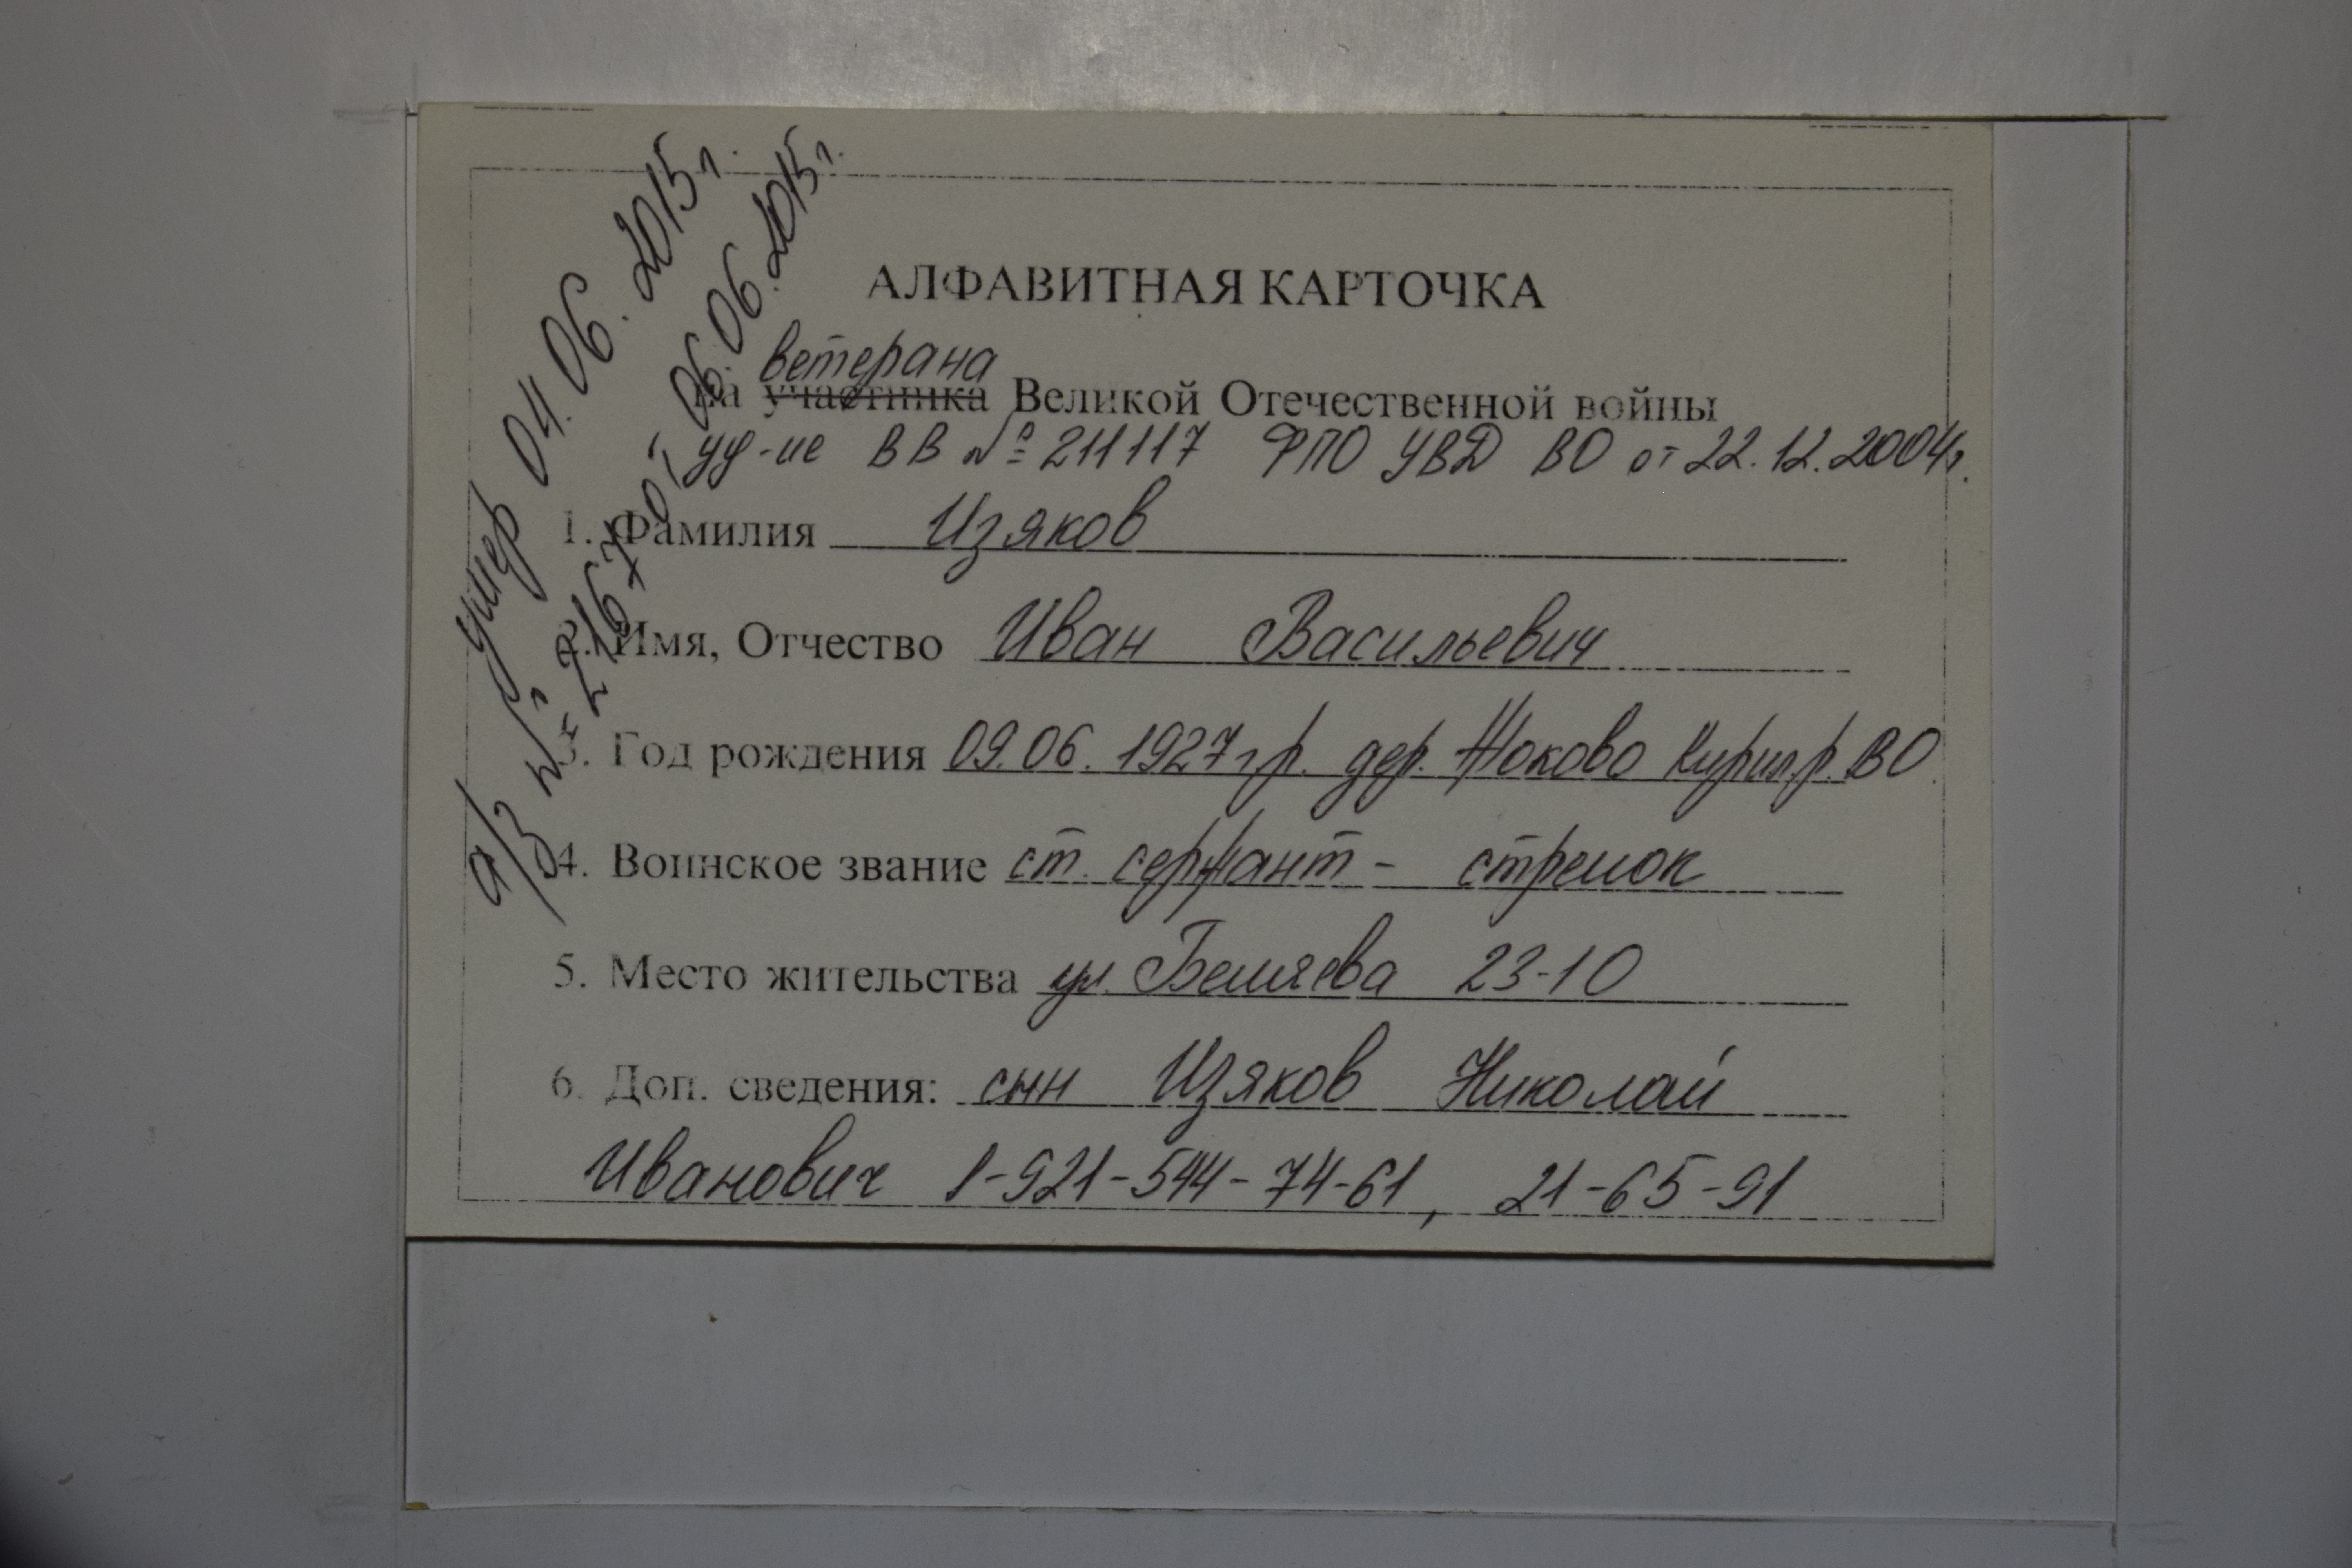 умер 04.06.2015г.
а/з № 2167 от 06.06.2015г.
АЛФАВИТНАЯ КАРТОЧКА
ветерана
на участника Великой Отечественной войны
уд-ие ВВ № 211117 ФПО УВД ВО от 22.12.2004г.
1. Фамилия Изяков
2. Имя, Отчество Иван Васильевич
3. Год рождения 09.06.1927 г.р. дер. Жоково Кирил.р. ВО
4. Воинское звание ст. сержант - стрелок
5. Место жительства ул. Беляева 23-10
6. Доп. сведения: сын Изяков Николай
Иванович 8-921-544-74-61, 21-65-91